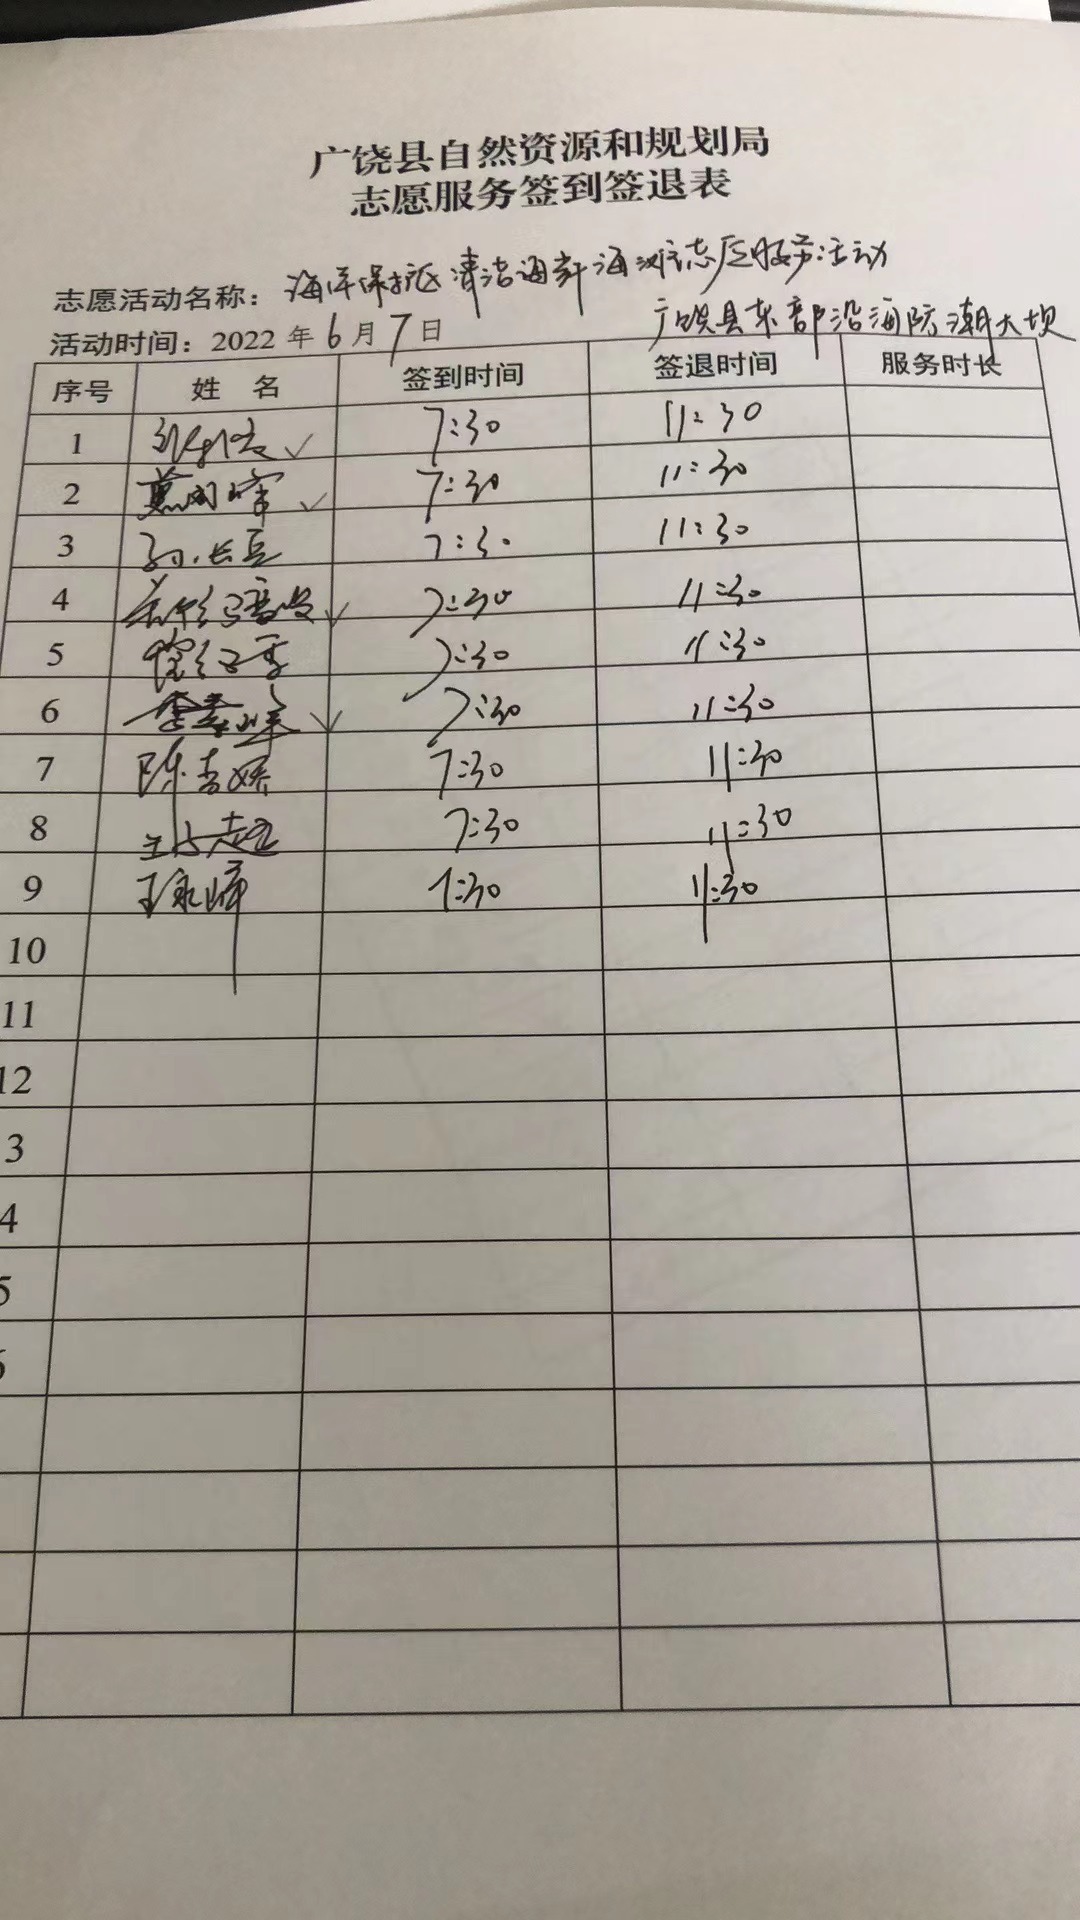 广饶县自然资源和规划局
志愿服务签到签退表
志愿活动名称：海洋保护区清洁海岸海滩志愿服务活动
活动时间：2022年6月7日 广饶县东部沿海防潮大坝
序号 姓 名 签到时间 签退时间 服务时长
1 ✓ 7:30 11:30
2 ✓ 7:30 11:30
3 7:30 11:30
4 ✓ 7:30 11:30
5 7:30 11:30
6 ✓ 7:30 11:30
7 7:30 11:30
8 7:30 11:30
9 7:30 11:30
10
11
12
3
4
5
6